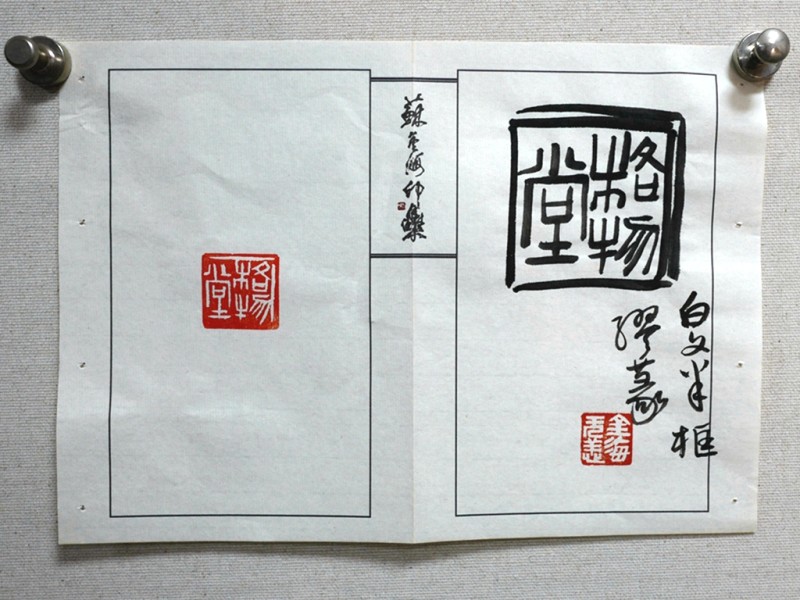 格物
堂
白文半框
繆篆
金海
无恙
蘇金海印
格物
堂